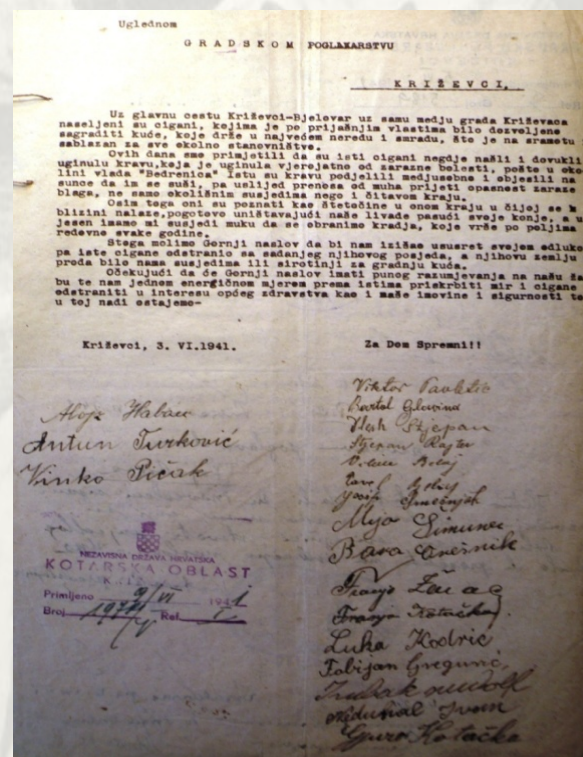 Uglednom
GRADSKOM POGLAVARSTVU
KRIŽEVCI,
Uz glavnu cestu Križevci-Bjelovar uz samu medju grada Križevaca
naseljeni su cigani, kojima je po prijašnjim vlastima bilo dozvoljeno
sagraditi kuće, koje drže u najvećem neredu i smradu, što je na sramotu
sablazan za sve okolno stanovništvo.
Ovih dana smo primjetili da su isti cigani negdje našli i dovukli
uginulu kravu,koja je uginula vjerojatno od zarazne bolesti pošto u oko
lini vlada "Bedrenica" Istu su kravu podjelili medjusobno i objesili n
sunce da im se suši, pa uslijed prenosa od muha prijeti opasnost zaraze
blaga, ne samo okolišnim susjedima nego i čitavom kraju.
Osim toga oni su poznati kao štetočine u onom kraju u čijoj se b
blizini nalaze,pogotovo uništavajući naše livade pasući svoje konje, a u
jesen imamo mi susjedi muku da se obranimo kradja, koje vrše po poljima
redovno svake godine.
Stoga molimo Gornji naslov da bi nam izišao ususret svojom odluko
pa iste cigane odstranio sa sadanjeg njihovog posjeda, a njihovu zemlju
proda bilo nama susjedima ili sirotinji za gradnju kuća.
Očekujući da će Gornji naslov imati punog razumjevanja na našu ža
bu te nam jednom energičnom mjerom prema istima priskrbiti mir i cigane
odstraniti u interesu općeg zdravstva kao i naše imovine i sigurnosti te
u toj nadi ostajemo-
Križevci, 3. VI.1941.
Za Dom Spremni!!
Alojz
Antun Turković
Vinko Pičak
NEZAVISNA DRŽAVA HRVATSKA
KOTARSKA OBLAST
Primljeno 9/VI 1941
Broj Ref.
Viktor Pavletić
Bartol
Vlah Stjepan
Stjepan Rajter
Josip
Mijo Šimunec
Bara
Franjo
Franjo Kotačka
Luka Kodrić
Fabijan Gregurić,
Ivan
Gjuro Kotačka